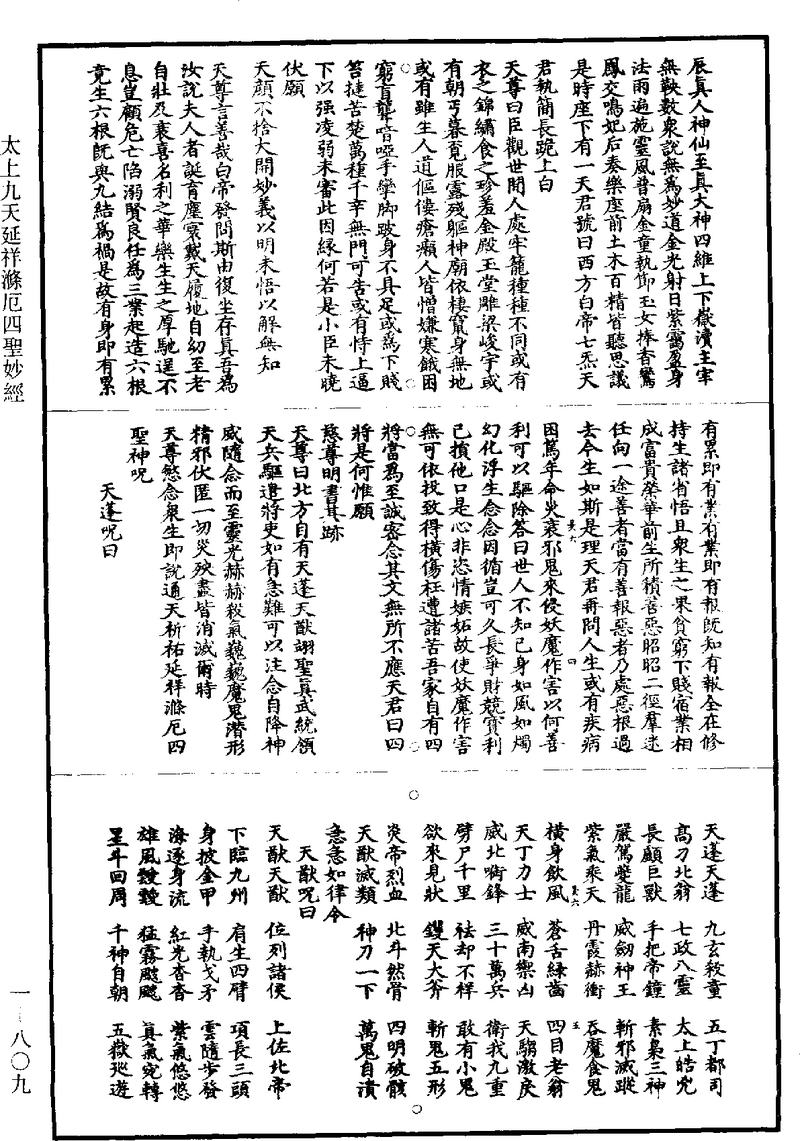 太上九天延祥滌厄四聖妙經
一—八〇九
辰真人神仙至真大神四維上下嶽瀆主宰
無鞅數衆說無爲妙道金光射日紫靄盈身
法雨遍施靈風普扇金童執節玉女捧香鸞
鳳交鳴妃后奏樂座前土木百精皆聽思議
是時座下有一天君號曰西方白帝七炁天
君執簡長跪上白
天尊曰臣觀世間人處牢籠種種不同或有
衣之錦繡食之珍羞金殿玉堂雕梁峻宇或
有朝丐暮覓服露殘軀神廟依棲竄身無地
或有雖生人道傴僂瘡癩人皆憎嫌寒餓困
窮盲聾喑啞手攣脚跛身不具足或爲下賤
笞撻苦楚萬種千辛無門可告或有恃上逼
下以强凌弱未審此因緣何若是小臣未曉
伏願
天顔不捨大開妙義以明未悟以解無知
天尊言善哉白帝發問斯由復坐存真吾爲
汝說夫人者誕育塵寰戴天履地自幼至老
自壯及衰喜名利之華樂生生之厚馳逞不
息豈顧危亡陷溺賢良任爲三業起造六根
竟生六根旣與九結爲禍是故有身即有累
有累即有業有業即有報旣知有報全在修
持生諸省悟且衆生之果貧窮下賤宿業相
成富貴榮華前生所積善惡昭昭二徑羣迷
任向一途善者當有善報惡者乃處惡根過
去今生如斯是理天君再問人生或有疾病
困篤年命災衰邪鬼來侵妖魔作害以何善
利可以驅除答曰世人不知己身如風如燭
幻化浮生念念因循豈可久長爭財競寶利
己損他口是心非恣情嫉妬故使妖魔作害
無可依投致得橫傷枉遭諸苦吾家自有四
將當爲至誠密念其文無所不應天君曰四
將是何惟願
慈尊明書其跡
天尊曰北方自有天蓬天猷翊聖真武統領
天兵驅遣將吏如有急難可以注念自降神
威隨念而至靈光赫赫殺氣巍巍魔鬼潛形
精邪伏匿一切災殃盡皆消滅爾時
天尊愍念衆生即說通天祈祐延祥滌厄四
聖神呪
天蓬呪曰
天蓬天蓬　九玄殺童　五丁都司
高刁北翁　七政八靈　太上皓兇
長顱巨獸　手把帝鐘　素梟三神
嚴駕夔龍　威劒神王　斬邪滅蹤
紫氣乘天　丹霞赫衝　吞魔食鬼
橫身飲風　蒼舌緑齒　四目老翁
天丁力士　威南禦凶　天騶激戾
威北啣鋒　三十萬兵　衛我九重
劈尸千里　祛却不祥　敢有小鬼
欲來見狀　钁天大斧　斬鬼五形
炎帝烈血　北斗然骨　四明破骸
天猷滅類　神刀一下　萬鬼自潰
急急如律令
天猷呪曰
天猷天猷　位列諸侯　上佐北帝
下臨九州　肩生四臂　項長三頭
身披金甲　手執戈矛　雲隨步發
海逐身流　紅光杳杳　紫氣悠悠
雄風𩙪𩙪　猛霧颼颼　真氣宛轉
星斗回周　千神自朝　五嶽巡遊